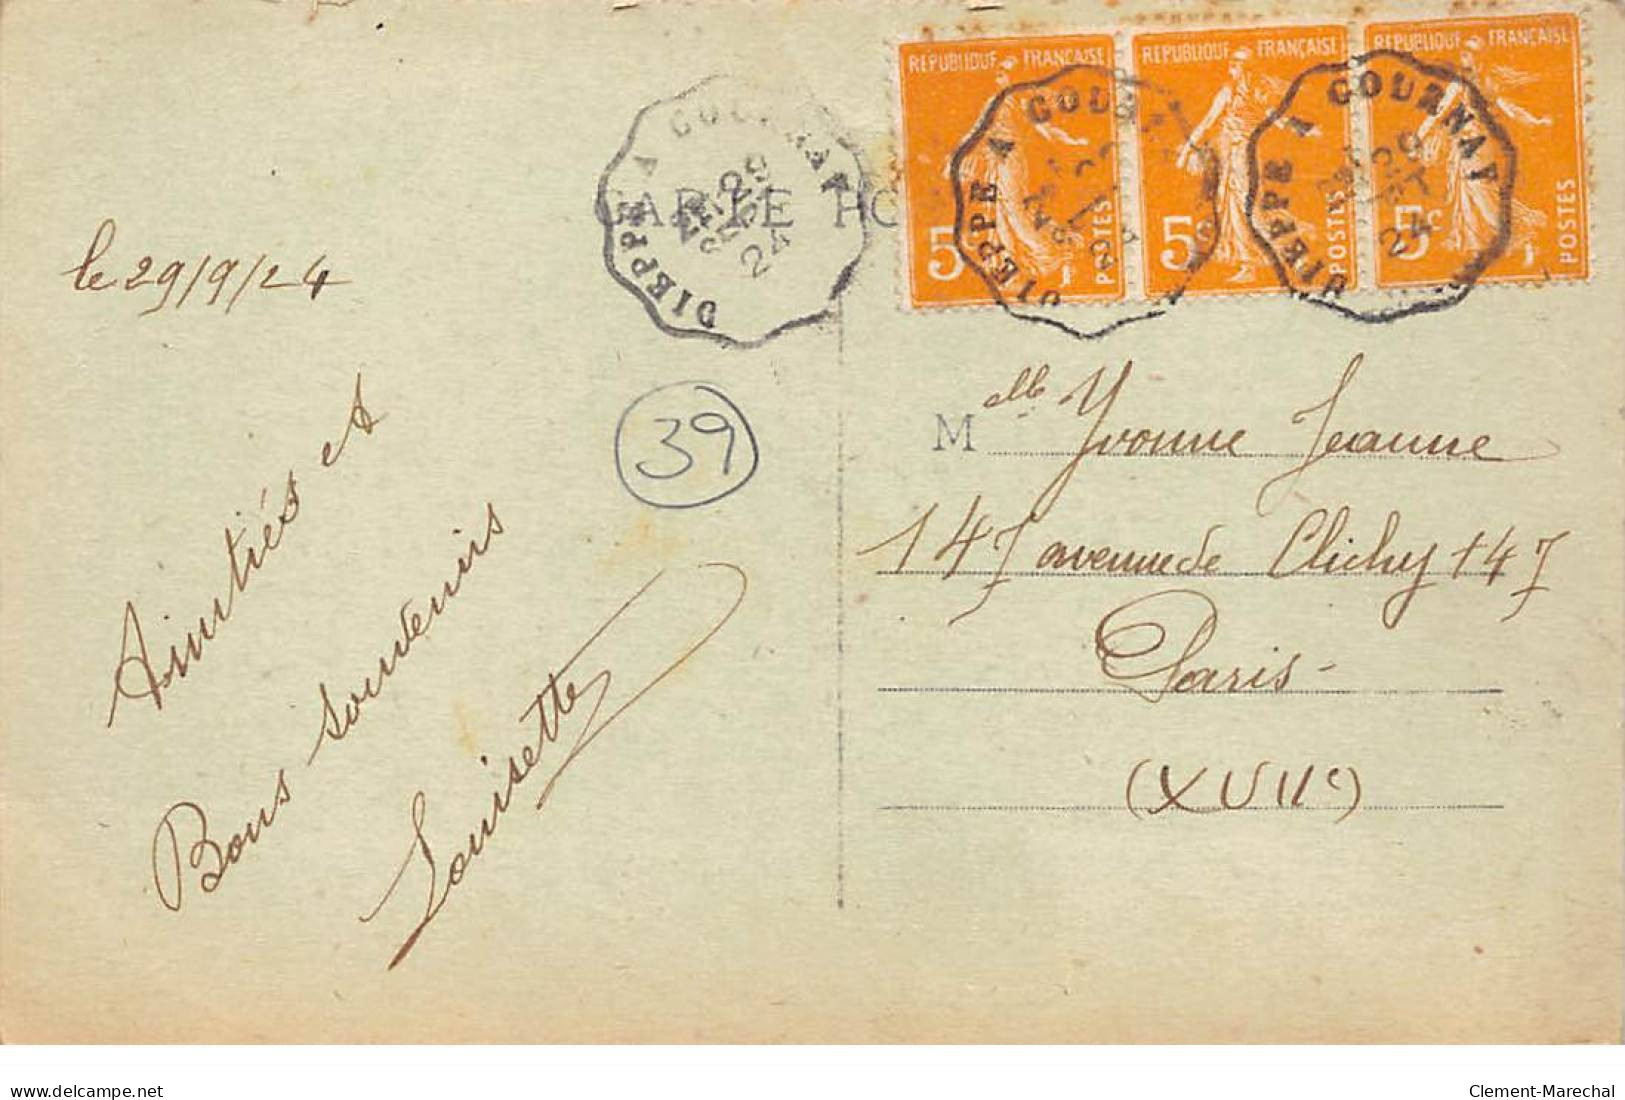 REPUBLIQUE FRANÇAISE
5c
POSTES
REPUBLIQUE FRANÇAISE
5c
POSTES
REPUBLIQUE FRANÇAISE
5c
POSTES
DIEPPE A GOURNAY
29
SEPT
24
DIEPPE A GOURNAY
DIEPPE A GOURNAY
29
24
CARTE PO
le 29/9/24
Amitiés et
Bons souvenirs
Louisette
39
Mlle Yvonne Jeanne
147 avenue de Clichy 147
Paris -
(XVIIe)
delcampe.net
Clement-Marechal